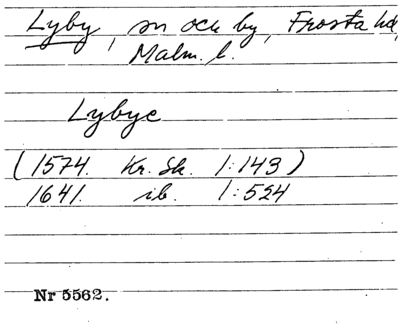 Lyby, sn och by, Frosta hd,
Malm. l.
Lybye
(1574. Kr. Sk. 1:143)
1641. ib. 1:524
Nr 5562.